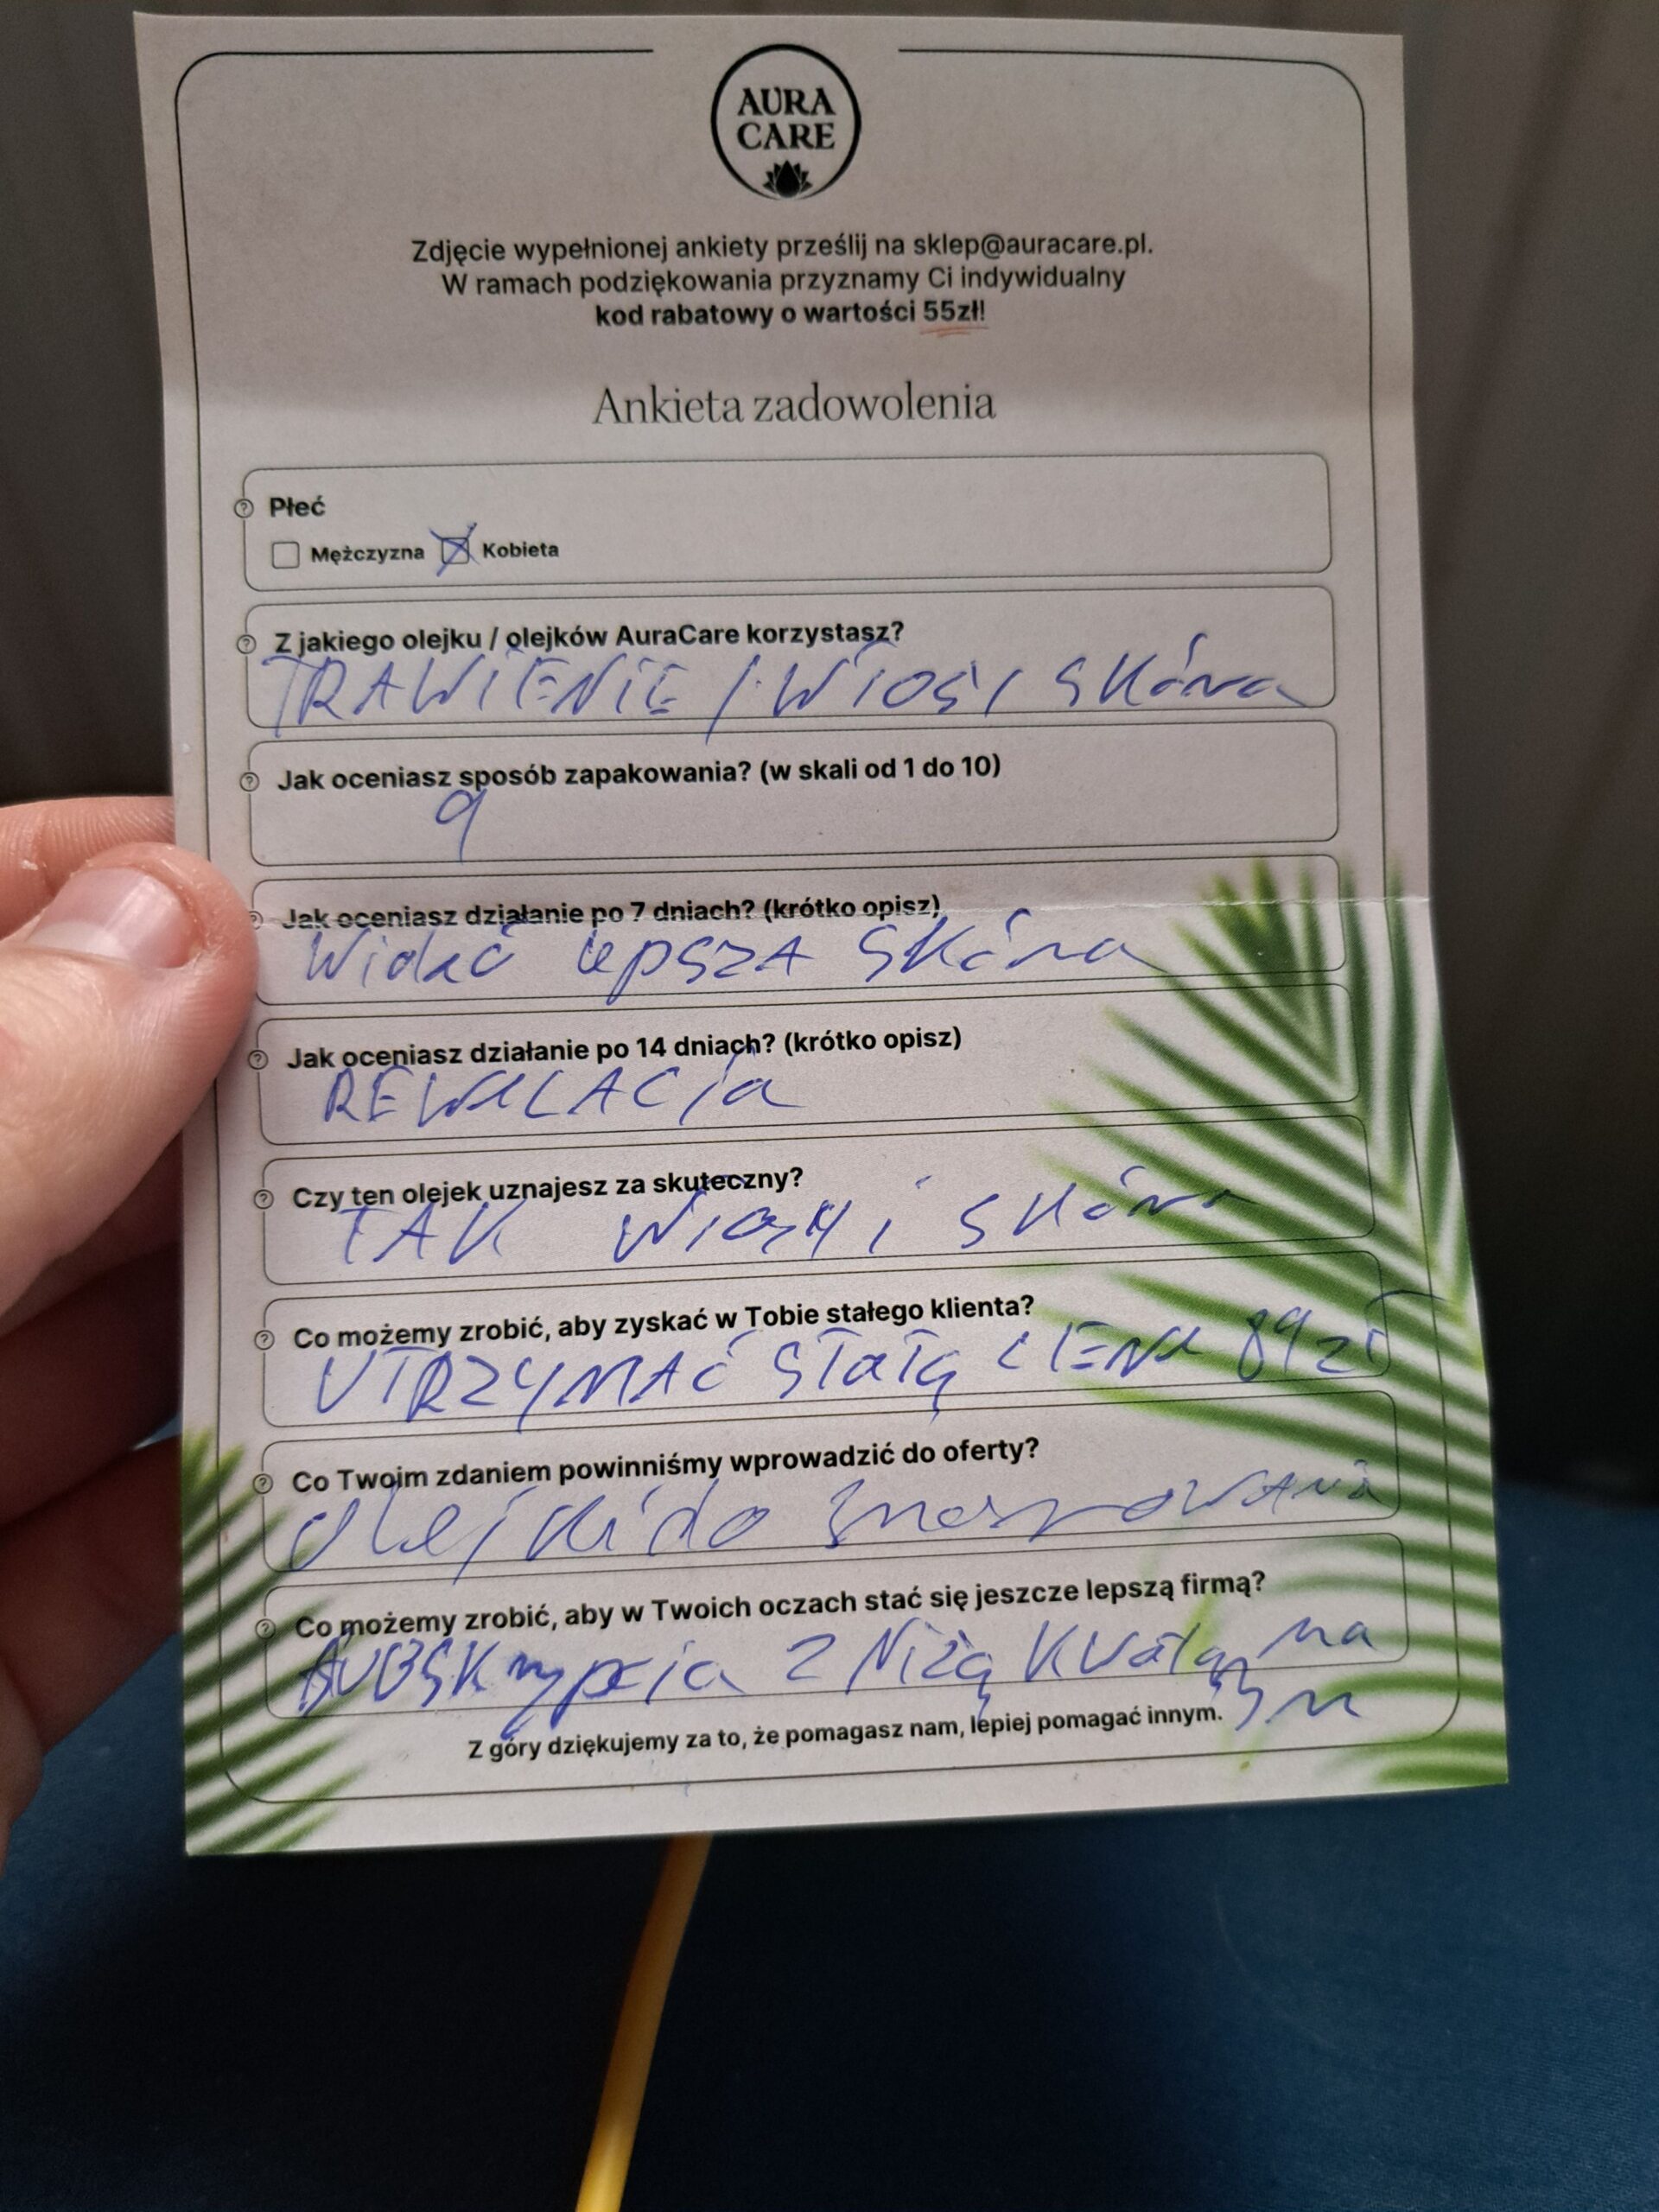 AURA
CARE
Zdjęcie wypełnionej ankiety prześlij na sklep@auracare.pl.
W ramach podziękowania przyznamy Ci indywidualny
kod rabatowy o wartości 55zł!
Ankieta zadowolenia
Płeć
Mężczyzna Kobieta
Z jakiego olejku / olejków AuraCare korzystasz?
TRAWIENIE / WŁOSY SKóra
Jak oceniasz sposób zapakowania? (w skali od 1 do 10)
9
Jak oceniasz działanie po 7 dniach? (krótko opisz)
Widać lepszA SKóra
Jak oceniasz działanie po 14 dniach? (krótko opisz)
REWELACja
Czy ten olejek uznajesz za skuteczny?
TAK Włosy i skóra
Co możemy zrobić, aby zyskać w Tobie stałego klienta?
UTRZYMAĆ STałą CENA 89 zł
Co Twoim zdaniem powinniśmy wprowadzić do oferty?
olejki do smarowania
Co możemy zrobić, aby w Twoich oczach stać się jeszcze lepszą firmą?
SUBSKrypcja z Niżą na
Z góry dziękujemy za to, że pomagasz nam, lepiej pomagać innym.